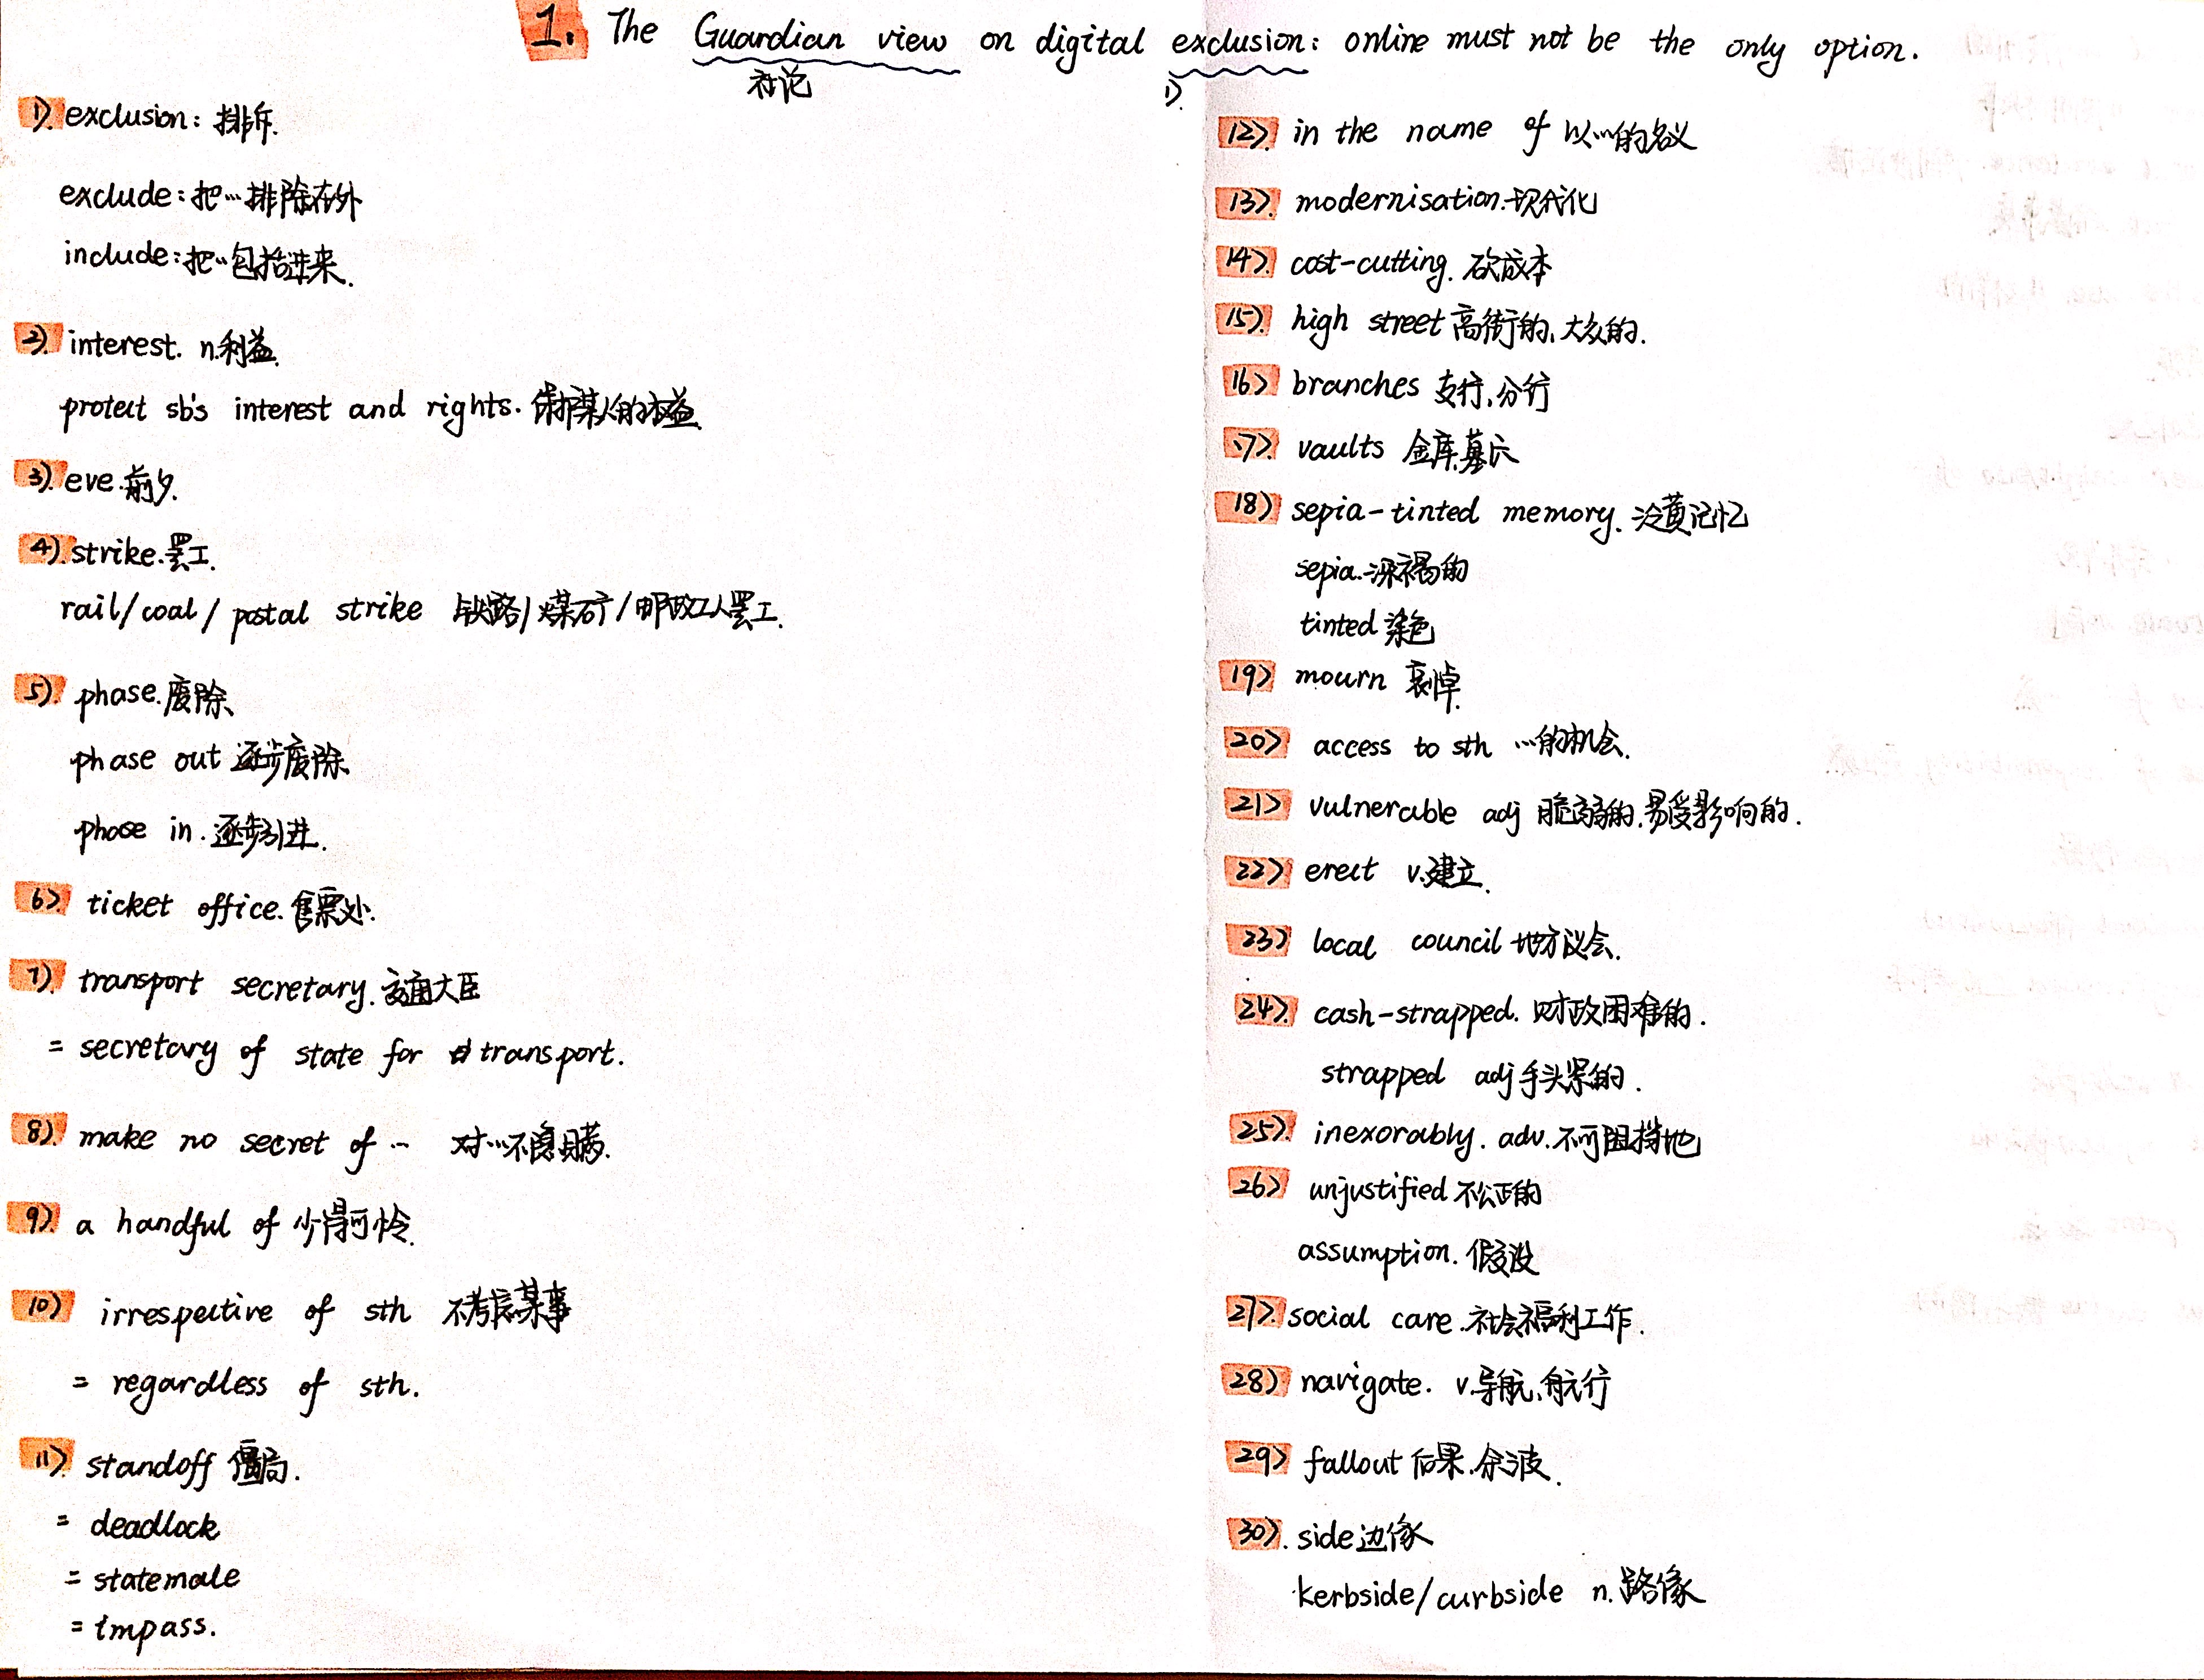 1. The Guardian view on digital exclusion: online must not be the only option.
社论
1).
1). exclusion: 排斥.
exclude: 把…排除在外
include: 把…包括进来.
2). interest. n.利益.
protect sb's interest and rights. 保护某人的权益.
3). eve.前夕.
4). strike.罢工.
rail/coal/postal strike 铁路/煤矿/邮政工人罢工.
5). phase.废除.
phase out 逐步废除.
phase in. 逐步引进.
6). ticket office.售票处.
7). transport secretary.交通大臣
= secretary of state for transport.
8). make no secret of … 对…不隐瞒.
9). a handful of 少得可怜.
10) irrespective of sth 不考虑某事
= regardless of sth.
11). standoff 僵局.
= deadlock
= statemale
= impass.
12). in the name of 以…的名义
13). modernisation.现代化
14). cost-cutting. 砍成本
15). high street 高街的、大众的.
16) branches 支行、分行
17). vaults 金库.墓穴
18) sepia-tinted memory. 泛黄记忆
sepia.深褐的
tinted 染色
19) mourn 哀悼.
20) access to sth …的机会.
21) vulnerable adj 脆弱的.易受影响的.
22) erect v.建立.
23) local council 地方议会.
24). cash-strapped. 财政困难的.
strapped adj 手头紧的.
25). inexorably. adv.不可阻挡地
26) unjustified 不公正的
assumption. 假设
27). social care.社会福利工作.
28) navigate. v.导航、航行
29) fallout 后果.余波.
30). side 边像
kerbside/curbside n.路像